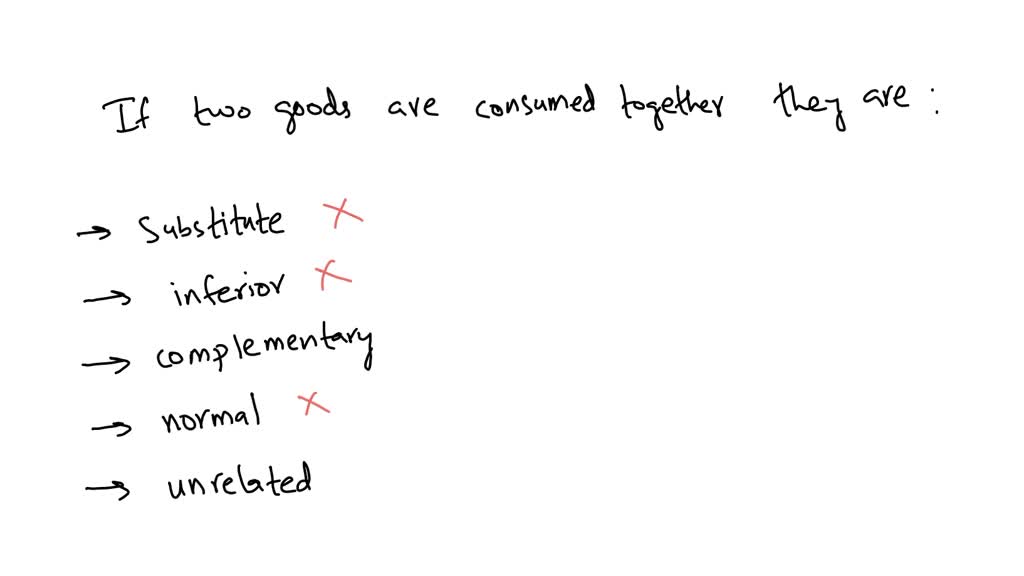 If two goods are consumed together they are :
→ Substitute ×
→ inferior ×
→ complementary
→ normal ×
→ unrelated